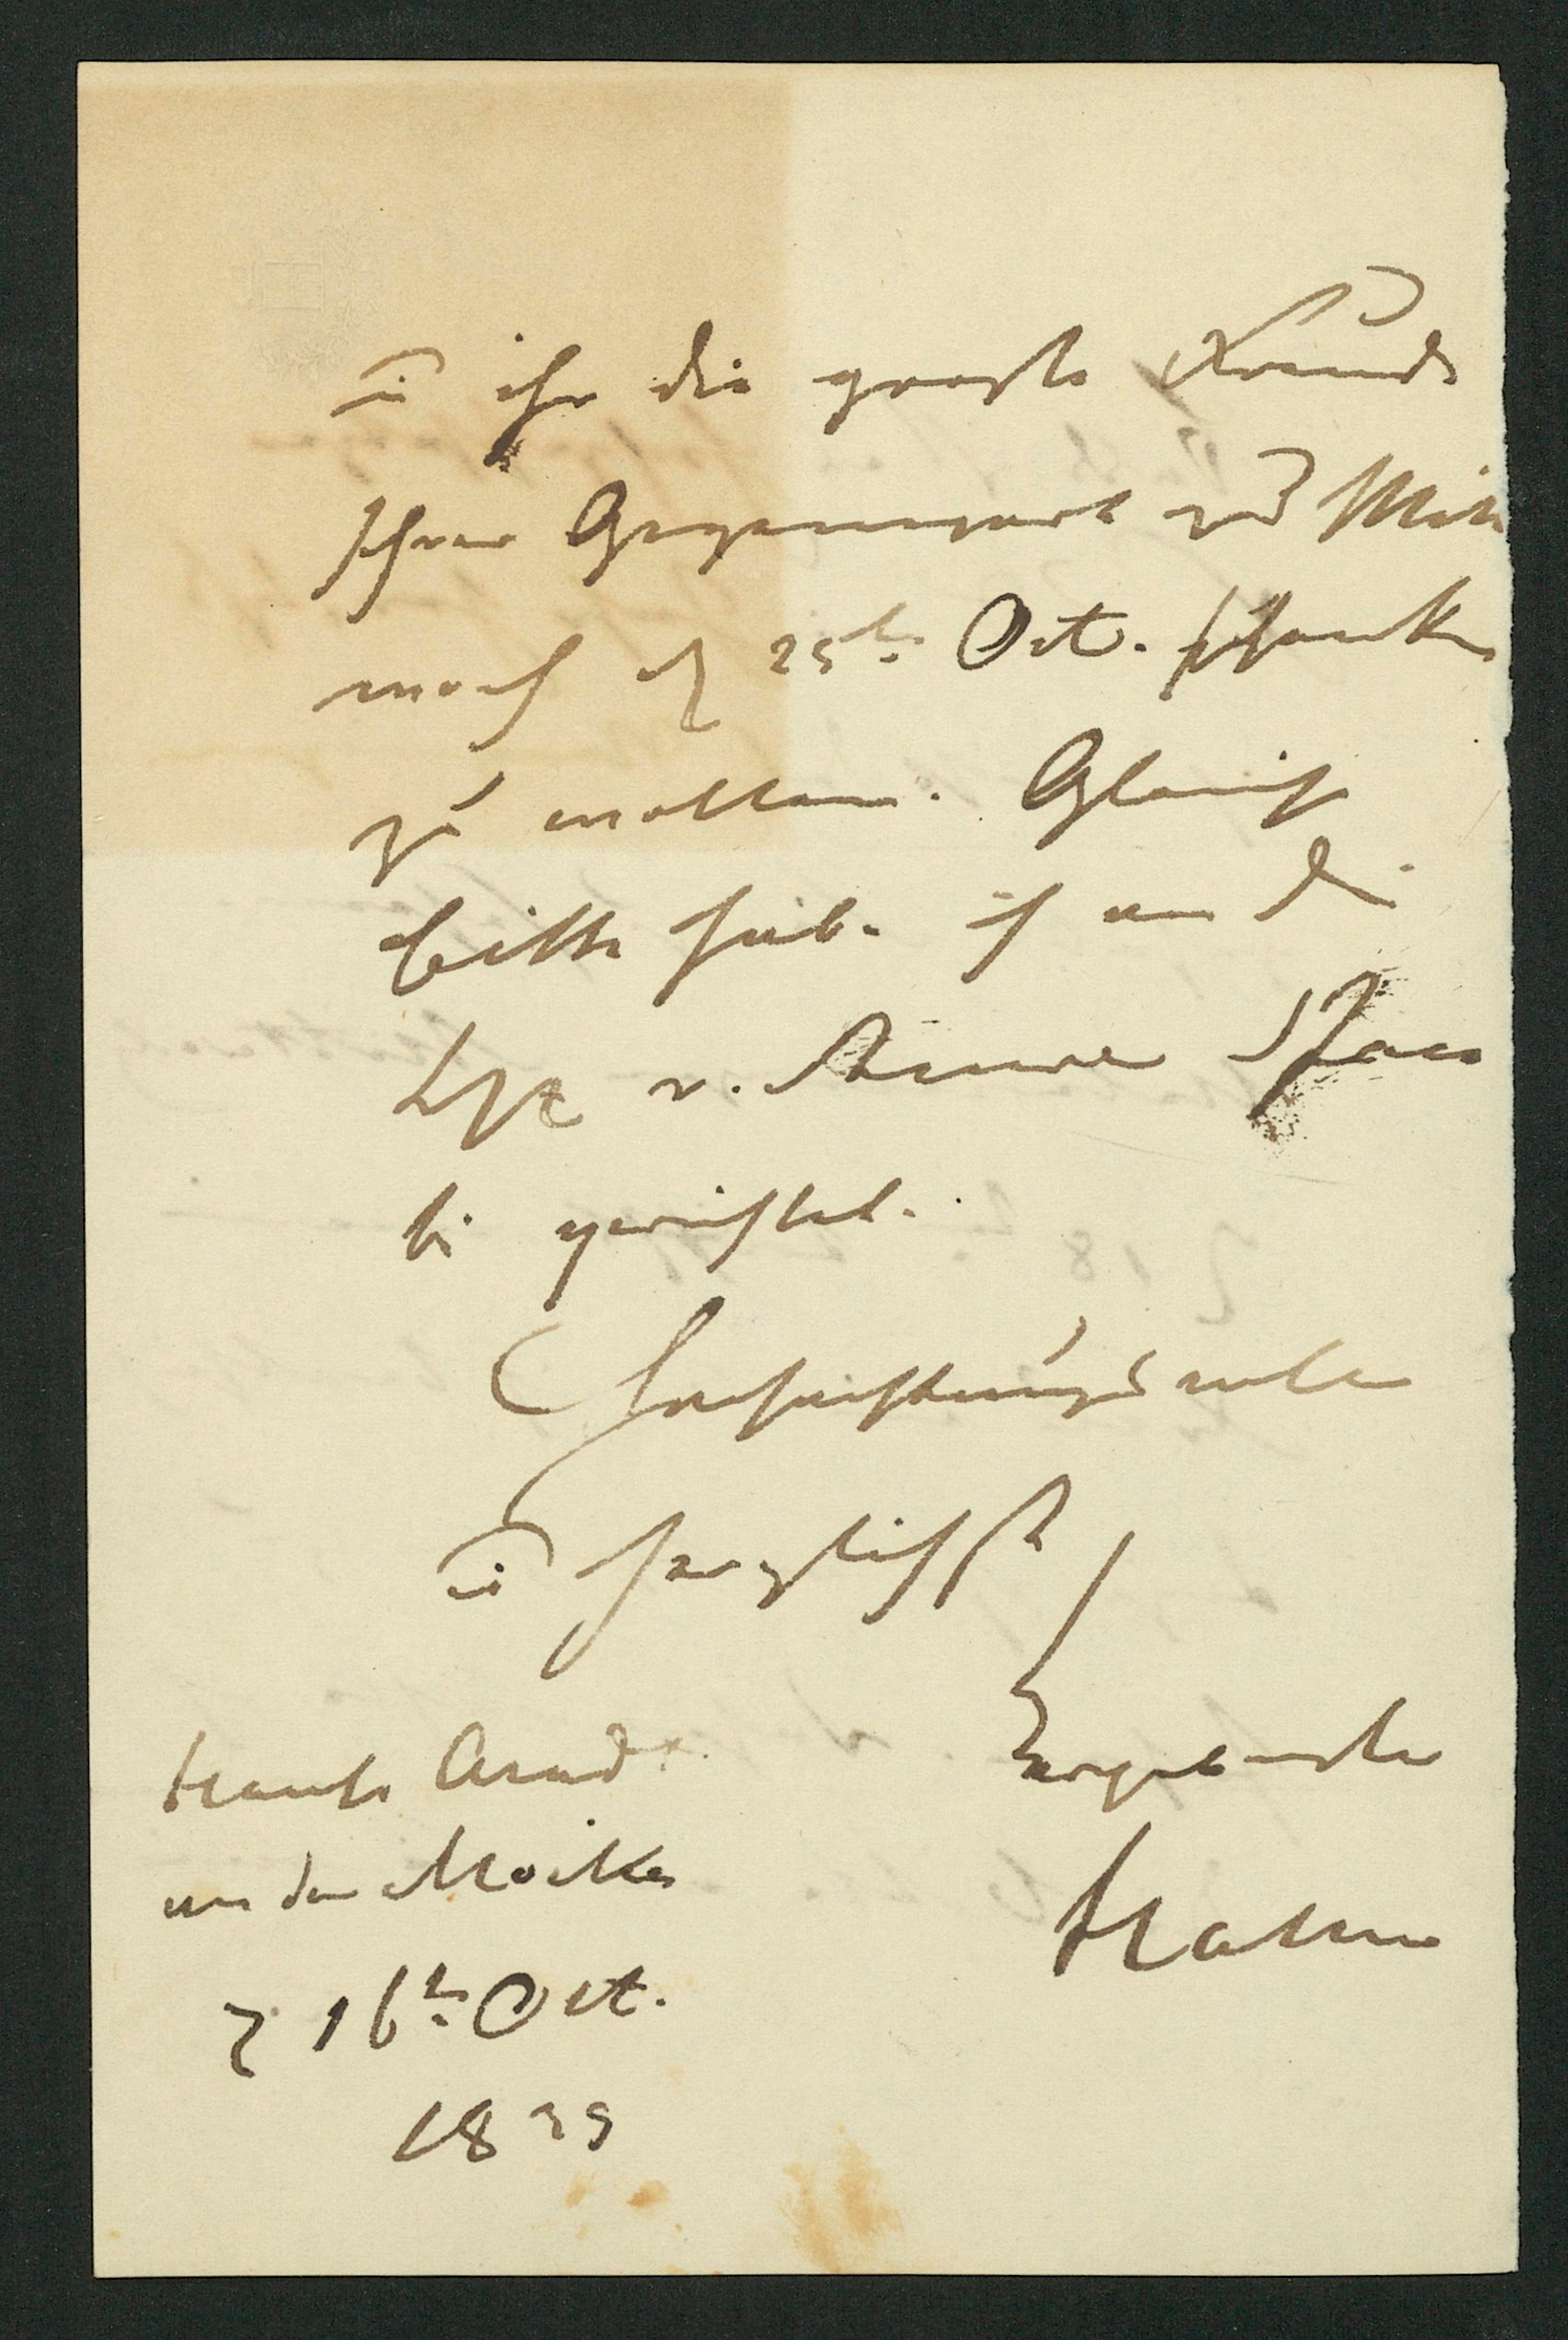 u ihr die große Freude
Ihrer Gegenwart zum Mitt
woch d 25ten Oct. schenken
zu wollen. Gleiche
bitte hab. ich an die
v.
bi gerichtet.
Hochachtungsvoll
u herzlichst
Ergebenste
Hahn
Hause
an der Moika
d 16ten Oct.
1839